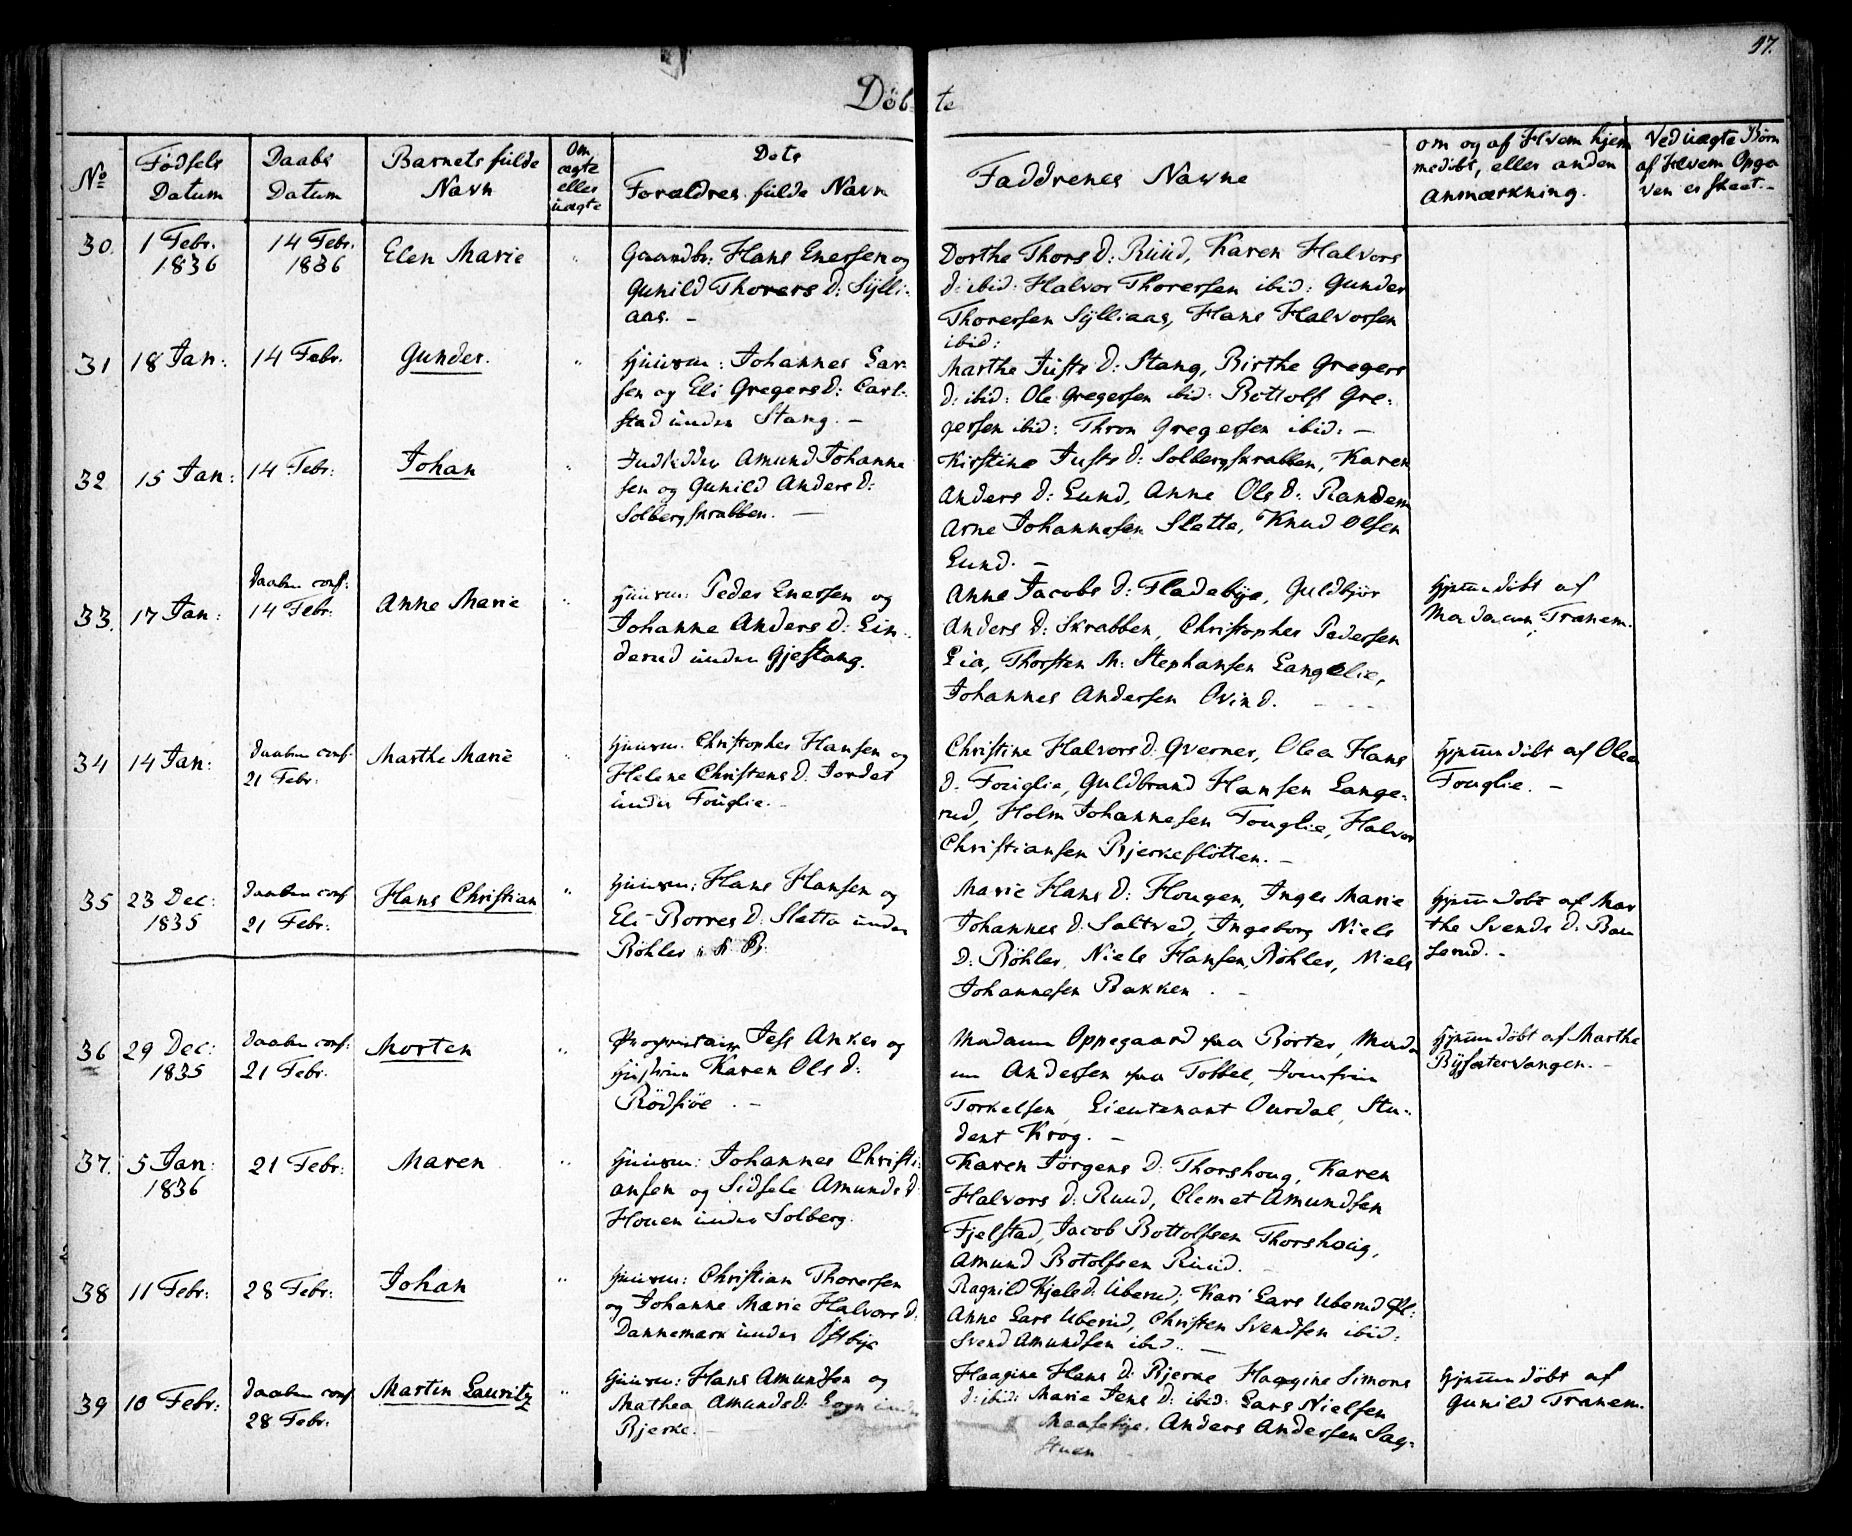 47.
Döb te
No
Fødsels Datum
Daabs Datum
Barnets fulde Navn
Om ægte eller uægte
Dets Forældres fulde Navn
Faddrenes Navne
om og af Hvem hjemmedöbt, eller anden Anmærkning.
Ved uægte Børn af Hvem Opgaven er skeet. -
30. 1 Febr. 1836
14 Febr. 1836
Elen Marie
"
Gaardbr: Hans Enersen og
Gunild Thorers D: Sÿlli-
aas. -
Dorthe Thors D: Ruud, Karen Halvors
D: ibid: Halvor Thorersen ibid: Gunder
Thorersen Sÿlliaas, Hans Halvorsen
ibid:
31 18 Jan:
14 Febr.
Gunder.
"
Huusm: Johannes Lar-
sen og Eli Gregers D: Carl-
stad under Stang. -
Marthe Justs D: Stang, Birthe Gregers
D: ibid: Ole Gregersen ibid: Bottolf Gre-
gersen ibid: Thron Gregersen ibid: -
32 15 Jan:
14 Febr:
Johan
"
Amund Johanne
sen og Gunild Anders D:
Solbergskrabben. -
Kirstine Justs D: Solbergskrabben, Karen
Anders D: Lund, Anne Ols D: Randem
Arne Johannesen Slette, Knud Olsen
Lund. -
33. 17 Jan:
Daaben conf: 14 Febr:
Anne Marie
"
Huusm: Peder Enersen og
Johanne Anders D: Lin-
derud under Gjestang.
Anne Jacobs D: Fladebye, Guldbjör
Anders D: Skrabben, Christopher Pedersen
Lia, Thorsten M: Stephansen Langelie,
Johannes Andersen Ovind.
Hjemmedöbt af
Madamm Tranem.
34 14 Jan:
Daaben conf. 21 Febr:
Marthe Marie
"
Huusm: Christopher Hansen og
Helene Christens D: Jordet
under Fouglie. -
Christine Halvors D: Qverner, Olea Hans
D. Fouglie, Guldbrand Hansen Lange-
rud, Holm Johannesen Fouglie, Halvor
Christiansen Bjerkeflötten. -
Hjemmedöbt af Olea
Fouglie. -
35 23 Dec: 1835
Daaben conf 21 Febr:
Hans Christian
"
Huusm: Hans Hansen og
Eli Borres D: Sletta under
Böhler
Marie Hans D: Hougen, Inger Marie
Johannes D: Saltved, Ingeborg Niels
D: Böhler, Niels Hansen Böhler, Niels
Johannesen Bakken. -
Hjemmedöbt af Mar
the Svends D: Bau
serud. -
36 29 Dec: 1835
Daaben conf: 21 Febr.
Morten
"
Proprietair Jess Anker og
Hustrue Karen Ols D:
Rödsiöe. -
Madam Oppegaard paa Börter, Mada
m Andersen paa Tobbel, Jomfrue
Torkelsen, Lieutenant Ourdal, Stu-
dent Krog. -
Hjemmedöbt af Marthe
Bÿsætervangen. -
37. 5 Jan: 1836
21 Febr:
Maren
"
Huusm: Johannes Christi-
ansen og Sidsele Amunds D
Houen under Solberg.
Karen Jörgens D: Thorshoug, Karen
Halvors D: Ruud, Clemet Amundsen
Fjelstad, Jacob Bottolfsen Thorshoug,
Amund Botolfsen Ruud. -
38 11 Febr:
28 Febr:
Johan
"
Huusm: Christian Thorersen
og Johanne Marie Halvors D:
Dannemark under Östbye
Ragnild Kjels D: Uberud, Kari Lars Uberud
Anne Lars Uberud, Christen Svendsen ibid:
Svend Amundsen ibid. -
39 10 Febr:
Daaben conf 28 Febr:
Martin Lauritz
"
Huusm: Hans Amundsen og
Mathea Amunds D: Sogn under
Bjerke. -
Haagine Hans D: Bjerke Haagine Simons
D: ibid: Marie Jens D: ibid: Lars Nielsen
Maasebye. Anders Andersen Sag-
stuen
Hjemmedöbt af
Gunild Tranem.